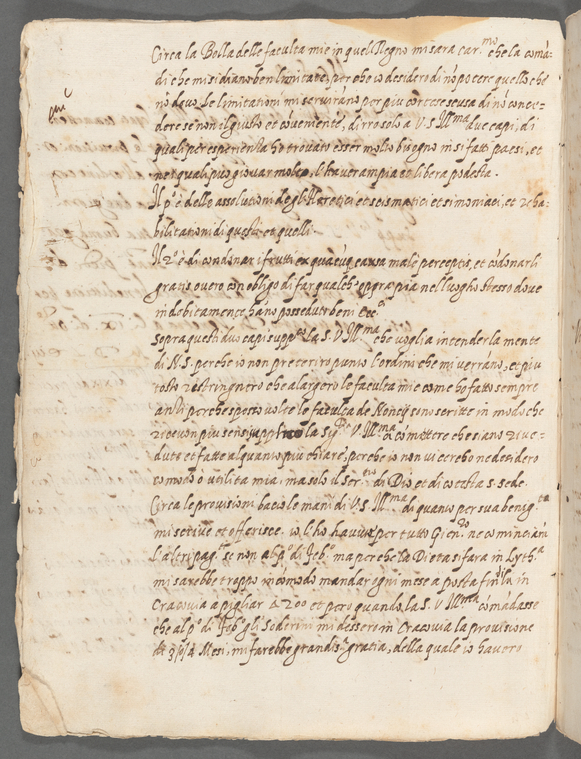 Circa la Bolla delle faculta mie in quel Regno mi sara car.mo che la comà-
di che mi si diano ben limitate, perche io desidero di nò potere quello che
nò devo. Le limitationi mi serviràno per piu cortese scusa di nò conce-
dere se non il giusto et còveniente, dirro solo a V.S. Ill.ma due capi, di
quali per esperienza ho trovato esser molto bisogno in sì fatti paesi, et
ne i quali può giovar molto, l'haver ampia et libera podesta.
Il p.o è delle assolutioni degl'Heretici et scismatici et simoniaci, et reha-
bilitationi di questi et quelli.
Il 2.o è di condonar i frutti ex quacùq causa male perceptis, et còdonarli
gratis overo con obligo di far qualche opra pia nel luogho stesso dove
indebitamente hàno posseduto beni Ecc.i
Sopra questi duo capi supp.co la S. V. Ill.ma che voglia intender la mente
di N.S. perche io non preteriro punto l'ordini che mi verràno, et piu
tosto restringnero che alargero le faculta mie come ho fatto sempre
anzi perche spesso volte le faculta de Noncij si no scritte in modo che
recevon piu sensi supplico la S. V. Ill.ma a còmettere che siano reve-
dute et fatte alquanto più chiare, perche io non vi cerebo ne desidero
comodo ò utilita mia, ma solo il Ser.tio di Dio et di cotesta s. sede.
Circa le provisioni bacio le mani di V.S. Ill.ma di quanto per sua benig.ta
mi scrive et offerisce. io l'ho havute per tutto Gien.ro ne cominciàni
l'altri pag.ti se non al p.o di Feb.o ma perche la Dieta si fara in Lyth.a
mi sarebbe troppo incòmodo mandar ogni mese a posta fin di la in
Cracovia a pigliar 200 et pero quando la S. V. Ill.ma comàdasse
che al p.o di Feb.o gli Soderini mi dessero in Cracovia la provisione
di 3/o/4 Mesi, mi farebbe grandis.a gratia, della quale io havero